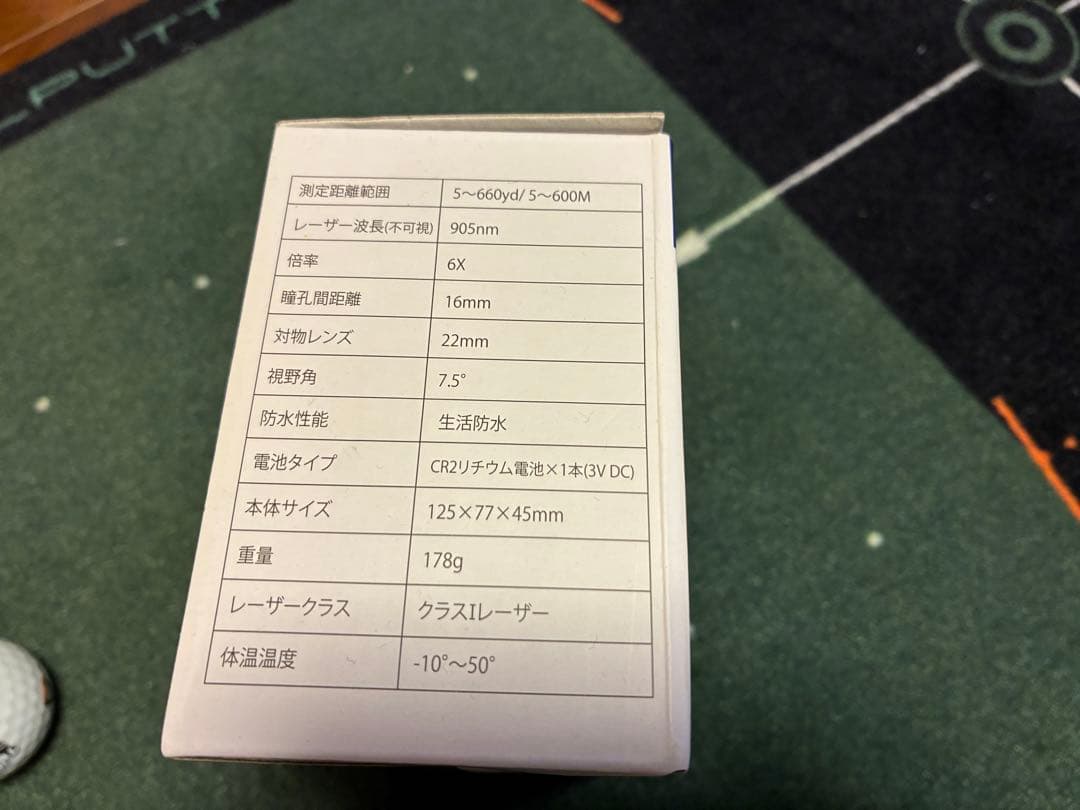 PUTT
測定距離範囲 5〜660yd/ 5〜600M
レーザー波長(不可視) 905nm
倍率 6X
瞳孔間距離 16mm
対物レンズ 22mm
視野角 7.5°
防水性能 生活防水
電池タイプ CR2リチウム電池×1本(3V DC)
本体サイズ 125×77×45mm
重量 178g
レーザークラス クラスIレーザー
体温温度 -10°〜50°